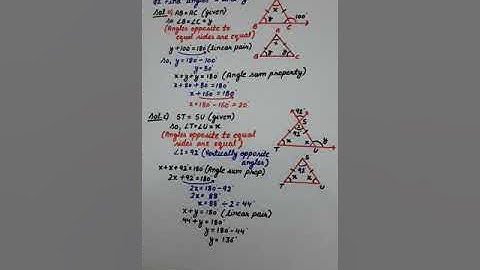 Q2 Find angles x and y
Sol. 1) AB = AC (given)
So ∠B = ∠C = y
(Angles opposite to
equal sides are equal)
y + 100° = 180° (linear pair)
So, y = 180 - 100°
y = 80°
x + y + y = 180° (Angle sum property)
x + 80 + 80 = 180°
x + 160 = 180°
x = 180 - 160 = 20°
A
x
y
100°
B
C
A
x
y
y
B
C
Sol 2) ST = SU (given)
So, ∠T = ∠U = x
(Angles opposite to equal
sides are equal)
∠S = 92° (Vertically opposite
angles)
x + x + 92° = 180° (Angle sum prop)
2x + 92° = 180°
2x = 180 - 92°
2x = 88°
x = 88 ÷ 2 = 44°
x + y = 180° (linear pair)
44 + y = 180°
y = 180° - 44°
y = 136°
92°
S
92°
x
x
y
T
U
S
92°
x
x
T
U